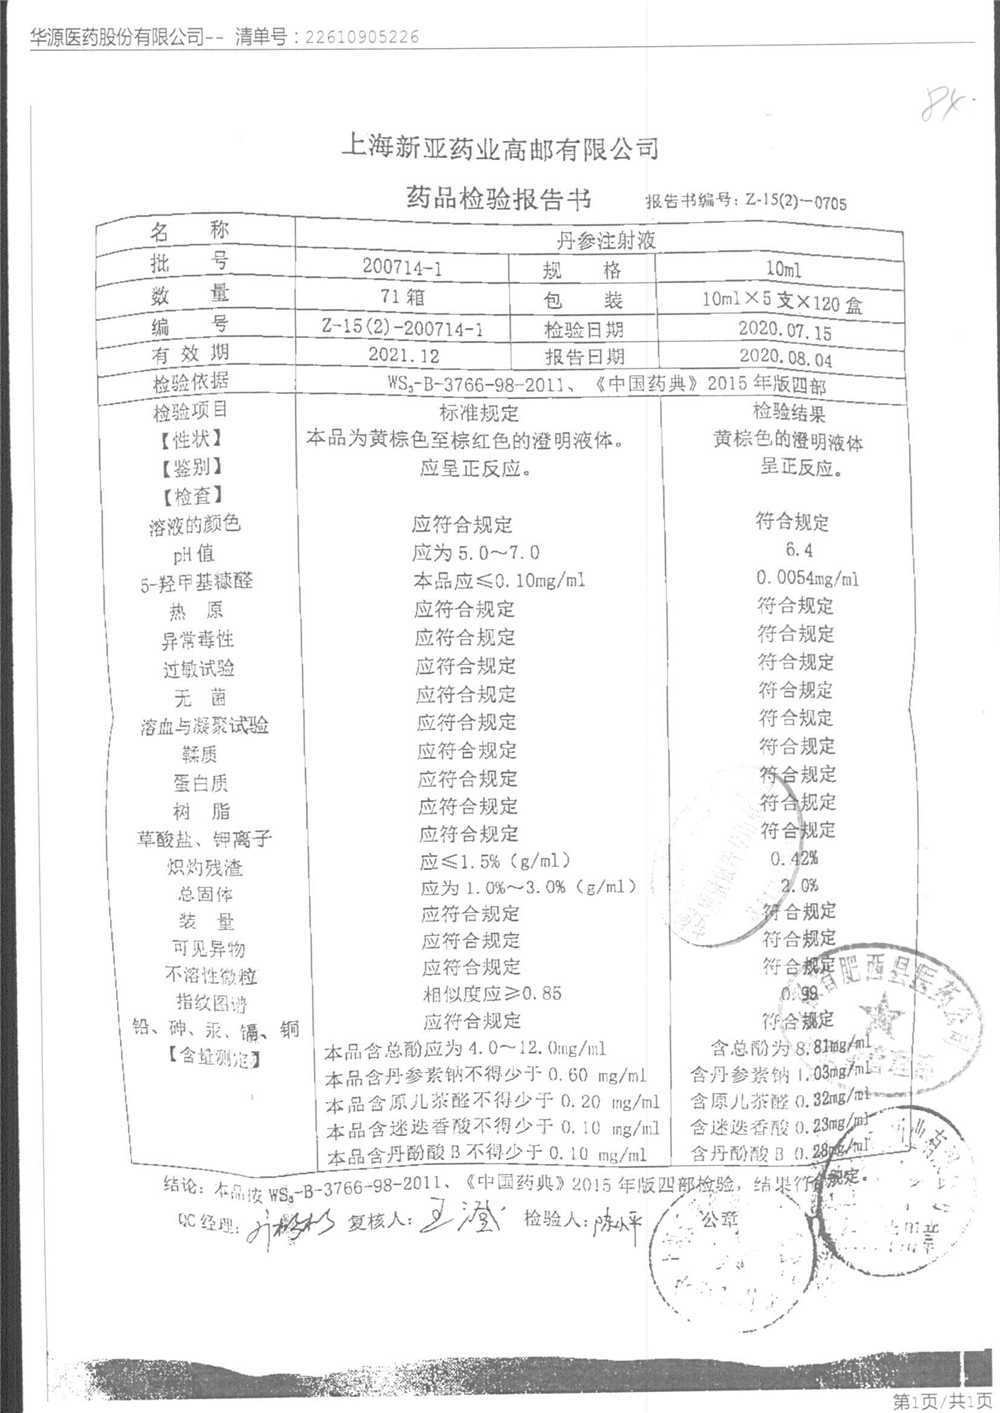 华源医药股份有限公司-- 清单号:22610905226
84.
上海新亚药业高邮有限公司
药品检验报告书 报告书编号:Z-15(2)-0705
名 称 丹参注射液
批 号 200714-1 规 格 10ml
数 量 71箱 包 装 10ml×5支×120盒
编 号 Z-15(2)-200714-1 检验日期 2020.07.15
有效期 2021.12 报告日期 2020.08.04
检验依据 WS₃-B-3766-98-2011、《中国药典》2015年版四部
检验项目 标准规定 检验结果
【性状】 本品为黄棕色至棕红色的澄明液体。 黄棕色的澄明液体
【鉴别】 应呈正反应。 呈正反应。
【检查】
溶液的颜色 应符合规定 符合规定
pH值 应为5.0~7.0 6.4
5-羟甲基糠醛 本品应≤0.10mg/ml 0.0054mg/ml
热 原 应符合规定 符合规定
异常毒性 应符合规定 符合规定
过敏试验 应符合规定 符合规定
无 菌 应符合规定 符合规定
溶血与凝聚试验 应符合规定 符合规定
鞣质 应符合规定 符合规定
蛋白质 应符合规定 符合规定
树 脂 应符合规定 符合规定
草酸盐、钾离子 应符合规定 符合规定
炽灼残渣 应≤1.5%(g/ml) 0.42%
总固体 应为1.0%~3.0%(g/ml) 2.0%
装 量 应符合规定 符合规定
可见异物 应符合规定 符合规定
不溶性微粒 应符合规定 符合规定
指纹图谱 相似度应≥0.85 0.99
铅、砷、汞、镉、铜 应符合规定 符合规定
【含量测定】 本品含总酚应为4.0~12.0mg/ml 含总酚为8.81mg/ml
本品含丹参素钠不得少于0.60 mg/ml 含丹参素钠1.03mg/ml
本品含原儿茶醛不得少于0.20 mg/ml 含原儿茶醛0.32mg/ml
本品含迷迭香酸不得少于0.10 mg/ml 含迷迭香酸0.23mg/ml
本品含丹酚酸B不得少于0.10 mg/ml 含丹酚酸B 0.28mg/ml
结论:本品按WS₃-B-3766-98-2011、《中国药典》2015年版四部检验,结果符合规定。
QC经理: 复核人:王澄 检验人:陈小平 公章
肥西县医药公司
第1页/共1页